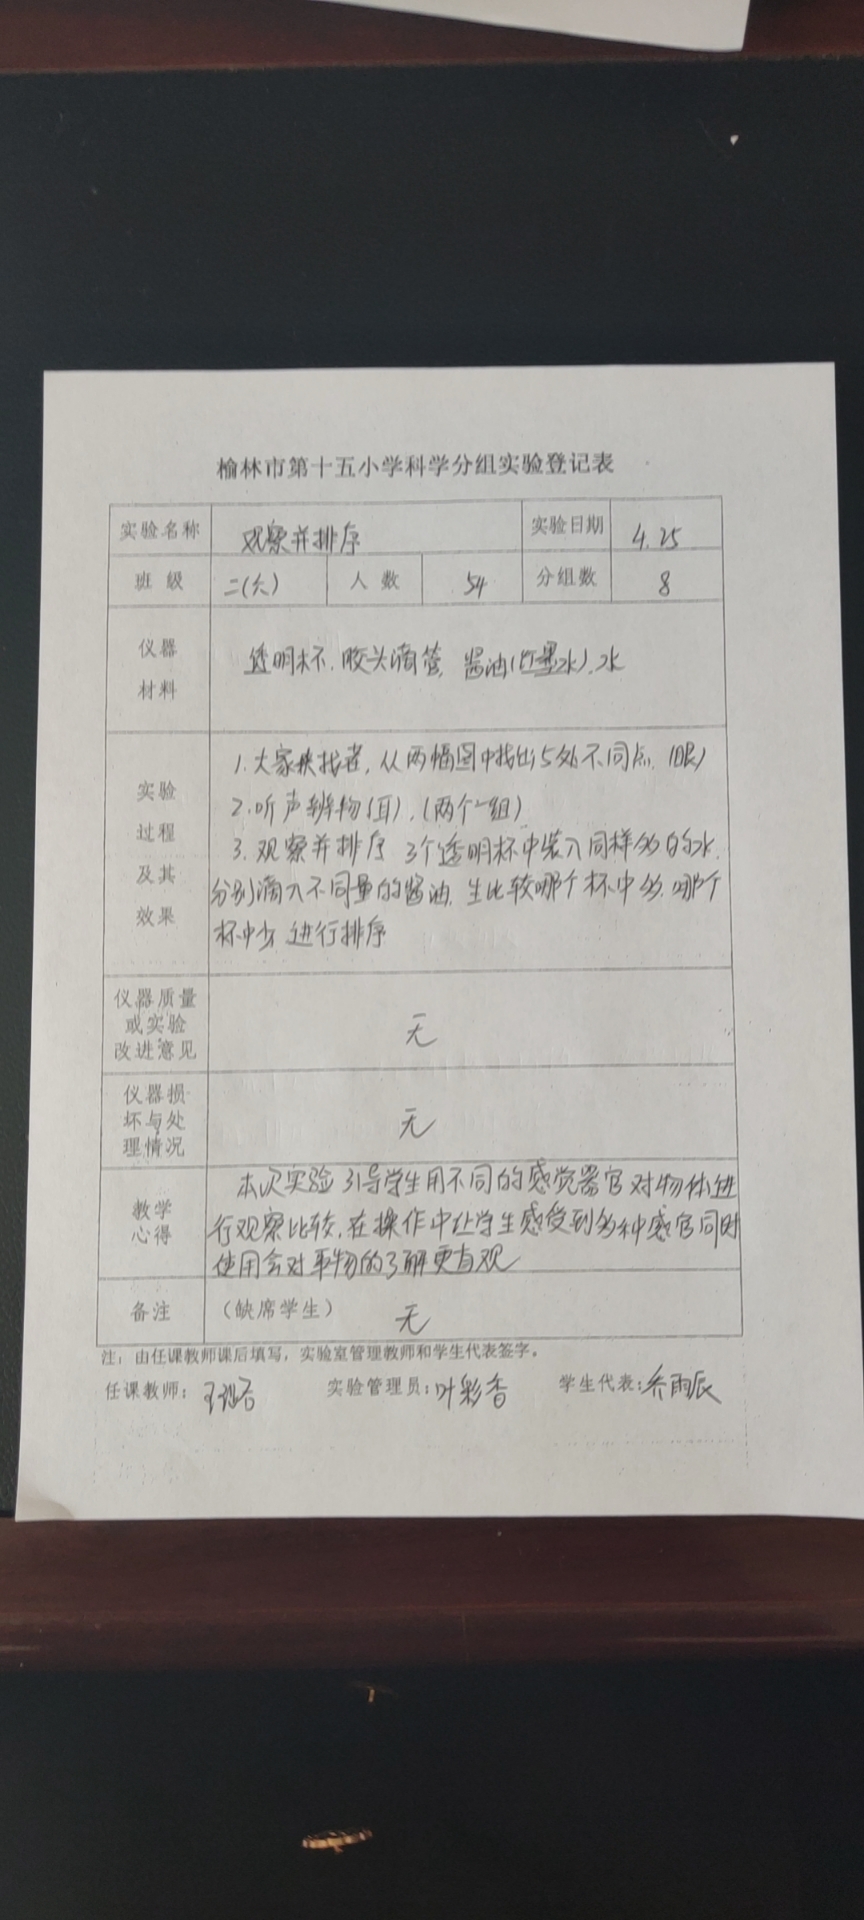 榆林市第十五小学科学分组实验登记表
实验名称 观察并排序 实验日期 4.25
班级 二(六) 人数 54 分组数 8
仪器
材料
透明杯、胶头滴管、酱油(红墨水)、水
实验
过程
及其
效果
1.大家来找茬,从两幅图中找出5处不同点.(眼)
2.听声辨物(耳),(两个一组)
3.观察并排序 3个透明杯中装入同样多的水.
分别滴入不同量的酱油.生比较哪个杯中多.哪个
杯中少 进行排序
仪器质量
或实验
改进意见
无
仪器损
坏与处
理情况
无
教学
心得
本次实验引导学生用不同的感觉器官对物体进
行观察比较,在操作中让学生感受到多种感官同时
使用会对事物的了解更直观
备注 (缺席学生) 无
注:由任课教师课后填写,实验室管理教师和学生代表签字。
任课教师: 实验管理员:叶彩香 学生代表:乔雨辰